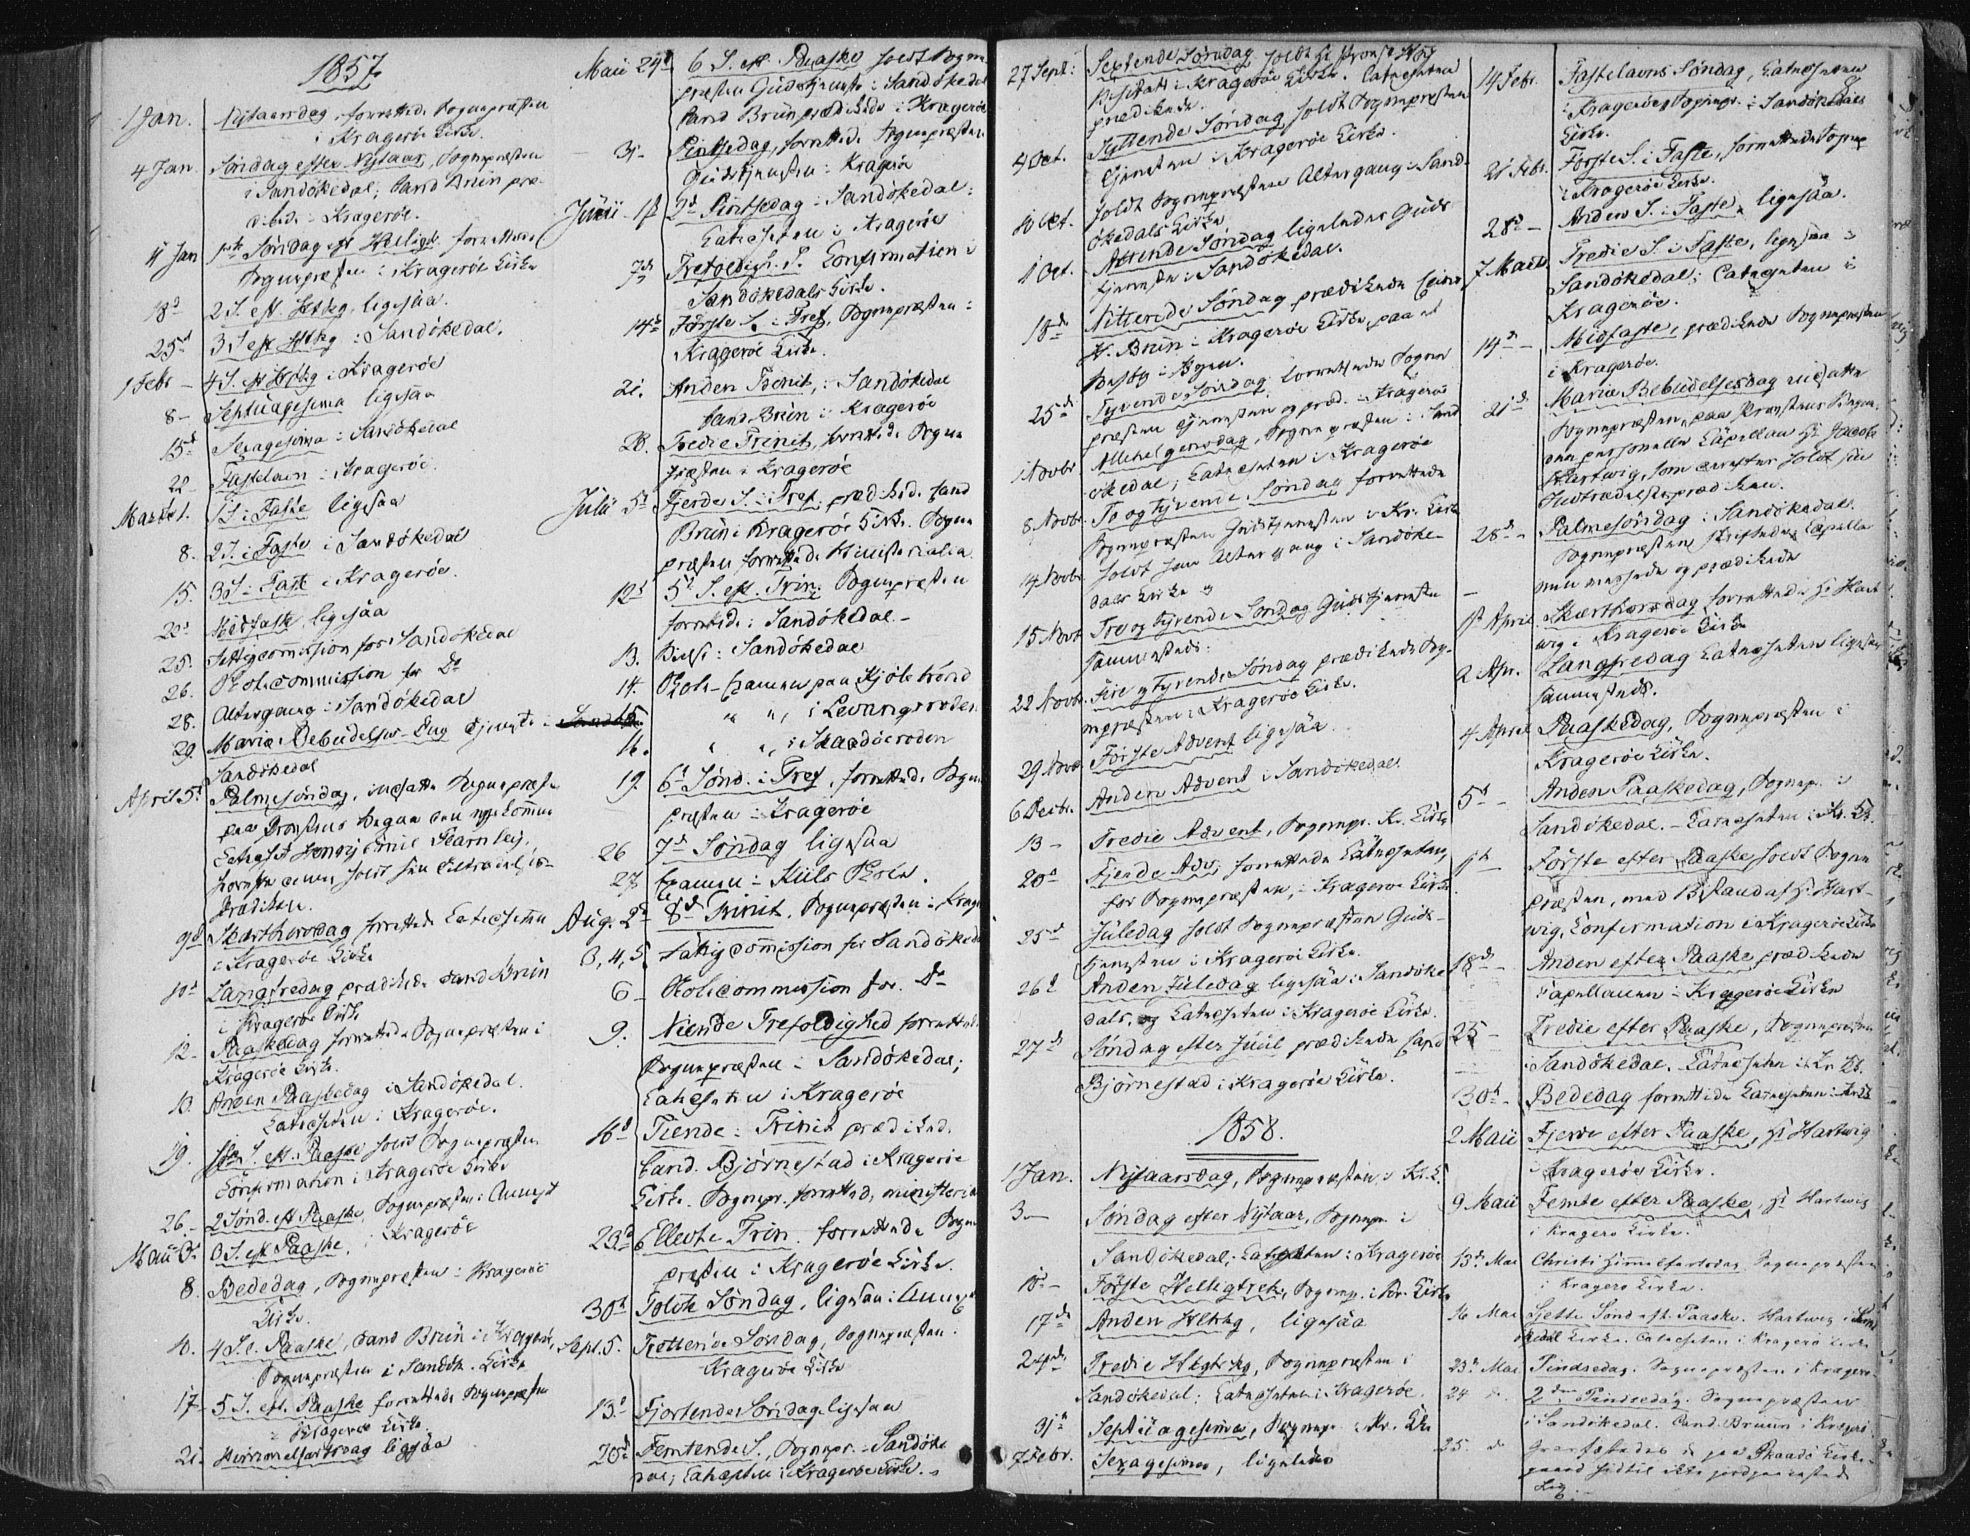 1857
1 Jan. Nytaarsdag, forrettede Sognepræsten
i Kragerøe Kirke.
4 Jan. Søndag efter Nytaar, Sognepræsten
i Sandøkedal; Cand Bruun præ-
diked. i Kragerøe.
11 Jan 1ste Søndag ef Helligt. forrettede
Sognepræsten i Kragerøe Kirke
18d 2 S. ef. Hltkg, ligesaa.
25d 3 S ef Hltkg i Sandøkedal.
1 Febr - 4 S. ef Hltkg i Kragerøe
8 - Septuagesima ligesaa
15d Sexagesima i Sandøkedal
22 - Fastelavn i Kragerøe.
Marts 1. 1 S i Faste ligesaa
8. 2 S. i Faste i Sandøkedal
15. 3 S i Faste i Kragerøe.
22d Midfaste, ligesaa
25. Fattigcommission for Sandøkedal
26. Skolecommission for Do
28. Altergang i Sandøkedal
29. Mariæ Bebudelses Dag Tjeneste i
Sandøkedal
April 5d Palmesøndag, indsatte Sognepræsten
paa Provstens Vegne den nyekomne
Catechet Henrij Emil Fearnley,
hvorefter denne holdt sin Tiltrædelses-
Prædiken.
9d Skærthorsdag forrettede Catecheten
i Kragerøe Kirke
10d Langfredag prædikede Cand Bruun
i Kragerøe Kirke
12 - Paaskedag forrettede Sognepræsten i
Kragerøe Kirke.
13. Anden Paaskedag i Sandøkedal.
Catecheten i Kragerøe.
19. 1ste S. eft. Paaske holdt Sognepræsten
Confirmation i Kragerøe Kirke
26 - 2 Sønd. eft Paaske, Sognepræsten i Annexet
Maii 3d 3 S. eft Paaske, i Kragerøe
8. Bededag, Sognepræsten i Kragerøe
Kirke.
10. 4 S. e. Paaske, Cand Bruun i Kragerøe,
Sognepræsten i Sandøk. Kirke
17 - 5 S. eft. Paaske forrettede Sognepræsten
i Kragerøe Kirke
21. Himmelfartsdag ligesaa
Maii 24d 6 S. eft. Paaske holdt Sogne-
præsten Gudstjeneste i Sandøkedal
Cand Bruun prædikede i Kragerøe
31 - Pintsedag, forrettede Sognepræsten
Gudstjenesten i Kragerøe
Junii 1d 2d Pintsedag i Sandøkedal;
Catecheten i Kragerøe
7d Trefoldigh. S. Confirmation i
Sandøkedals Kirke.
14d Første S. i Tref, Sognepræsten i
Kragerøe Kirke.
21. Anden Trinit, i Sandøkedal
Cand. Bruun i Kragerøe
28. Tredie Trinit, forrettede Sogne
præsten i Kragerøe
Julii 5d Fjerde S. i Tref, prædiked. Cand
Bruun i Kragerøe Kirke. Sogne
præsten forrettede Ministerialia.
12d 5d S. eft. Trin. Sognepræsten
forrettede i Sandøkedal -
13. Vielse i Sandøkedal
14. Skole-Examen paa Kjølebrønd
15. " " i Levangsroden
16. " " i Skaadøeroden
19. 6d Sønd. i Tref, forrettede Sogne
præsten i Kragerøe
26 7d Søndag ligesaa
27 Examen i Kiils Skole.
Aug. 2d 8d Trinit. Sognepræsten i Krage
3, 4, 5 Fattigcommission for Sandøkeda
6 - Skolecommission for Do
9. Niende Trefoldighed forrettede
Sognepræsten i Sandøkedal;
Catecheten i Kragerøe
16d Tiende i Trinit prædiked.
Cand. Bjørnestad i Kragerøe
Kirke. Sognepr. forretted. ministeria
23d Ellevte Trin. forrettede Sogne
præsten i Kragerøe Kirke.
30d Tolvte Søndag, ligesaa i Annexet
Sept. 6. Trettende Søndag, Sognepræsten i
Kragerøe Kirke
13d Fjortende Søndag ligesaa
20d Femtende S., Sognepr. i Sandøke
dal; Catecheten i Kragerøe Kirke. -
27 Sept: Sextende Søndag holdt Hr Provst
Visitats i Kragerøe Kirke. Catecheten
prædikede.
4 Oct. Syttende Søndag holdt Sognepræsten
Tjenesten i Kragerøe Kirke.
10 Oct. holdt Sognepræsten Altergang i Sand-
økedals Kirke
11 Oct. Attende Søndag ligeledes Guds-
tjeneste i Sandøkedal.
18d Nittende Søndag prædikede Cand
N. Bruun i Kragerøe Kirke, paa et
Besøg i Byen.
25d Tyvende Søndag forrettede Sogne
præsten Tjenesten og præd. i Kragerøe
1 Novbr Allehelgensdag, Sognepræsten i Sand
økedal; Catecheten i Kragerøe
8 Novbr. To og Tyvende Søndag forrettede
Sognepræsten Gudstjenesten i Kr. Kirke
14 Novbr holdt han Altergang i Sandøke-
dals Kirke
15 Novbr Tre og tyvende Søndag Gudstjeneste
sammesteds.
22 Novbr. Fire og Tyvende Søndag prædikede Sog-
nepræsten i Kragerøe Kirke.
29 Novbr Første Advent ligesaa.
6 Decbr. Anden Advent i Sandøkedal
13 - Tredie Advent, Sognepr. Kr. Kirke
20d Fjerde Adv. forrettede Catecheten,
for Sognepræsten, i Kragerøe Kirke.
25d Juledag holdt Sognepræsten Guds-
tjenesten i Kragerøe Kirke.
26d Anden Juledag ligesaa i Sandøke
dals, og Catecheten i Kragerøe Kirke.
27d Søndag efter Juul prædikede Cand
Bjørnestad i Kragerøe Kirke.
1858.
1 Jan. Nytaarsdag, Sognepræsten i Kr. K.
3 - Søndag efter Nytaar, Sognepr. i
Sandøkedal; Catecheten i Kragerøe
10d - Første Helligtrek, Sognepr. i Kr. Kirke
17d Anden Hltkg, ligesaa
24de Tredie Hlgtrkg, Sognepræsten i
Sandøkedal; Catecheten i Kragerøe.
31d Septuagesima, Sognepr. i Kr. Kirke
7 Febr. Sexagesima, ligeledes
14 Febr. Fastelavns Søndag, Catecheten
i Kragerøe; Sognepr. i Sandøkedals
Kirke.
21 Febr. Første S. i Faste, forrettede Sognepr
i Kragerøe Kirke.
28d - Anden S. i Faste, ligesaa.
7 Marts Tredie S. i Faste, ligesaa i
Sandøkedal; Catecheten i
Kragerøe.
14d - Midfaste, prædikede Sognepræsten
i Kragerøe.
21d Mariæ Bebudelsesdag indsatte
Sognepræsten, paa Provstens Vegne,
den personelle Capellan Hr Jacob
Hartwig, som derefter holdt sin
Indtrædelsesprædiken.
28d - Palmesøndag i Sandøkedal.
Sognepræsten skriftede, Capella
nen messede og prædikede
1st April Skærthorsdag forrettede Hr Hart
wig i Kragerøe Kirke
2 Apr. Langfredag Catecheten ligesaa
sammesteds.
4 April Paaskedag, Sognepræsten i
Kragerøe Kirke.
5d - Anden Paaskedag, Sognepr. i
Sandøkedal. - Catecheten i Kr. K.
11te Første efter Paaske holdt Sogne
præsten, med Bistand af Hr Hart-
wig, Confirmation i Kragerøe Kirke
18d - Anden efter Paaske prædikede
Capellanen i Kragerøe Kirke
25 - Tredie efter Paaske, Sognepræsten
i Sandøkedal. Catecheten i Kr. K.
30d - Bededag forrettede Catecheten i Kr. K.
2 Maii Fjerde efter Paaske, Hr Hartwig
i Kragerøe Kirke.
9 Maii Femte efter Paaske, Hr Hartwig
i Kragerø Kirke.
13d Mai Christi Himmelfartsdag Sognepræsten
i Kragerø Kirke.
16 Mai Sjette Sønd. eft. Paaske. Hartwig i Sand
økedal Kirke. Catecheten i Kragerø Kirke
23d Mai Pindsedag. Sognepræsten i Kragerø.
24 d. 2den Pindsedag. Sognepræsten
i Sandøkedal. Cand. Bruun i Kragerø.
25. d paa Skaadø Kirke-
gaard hidtil ikke jordpaakastede
Lig.